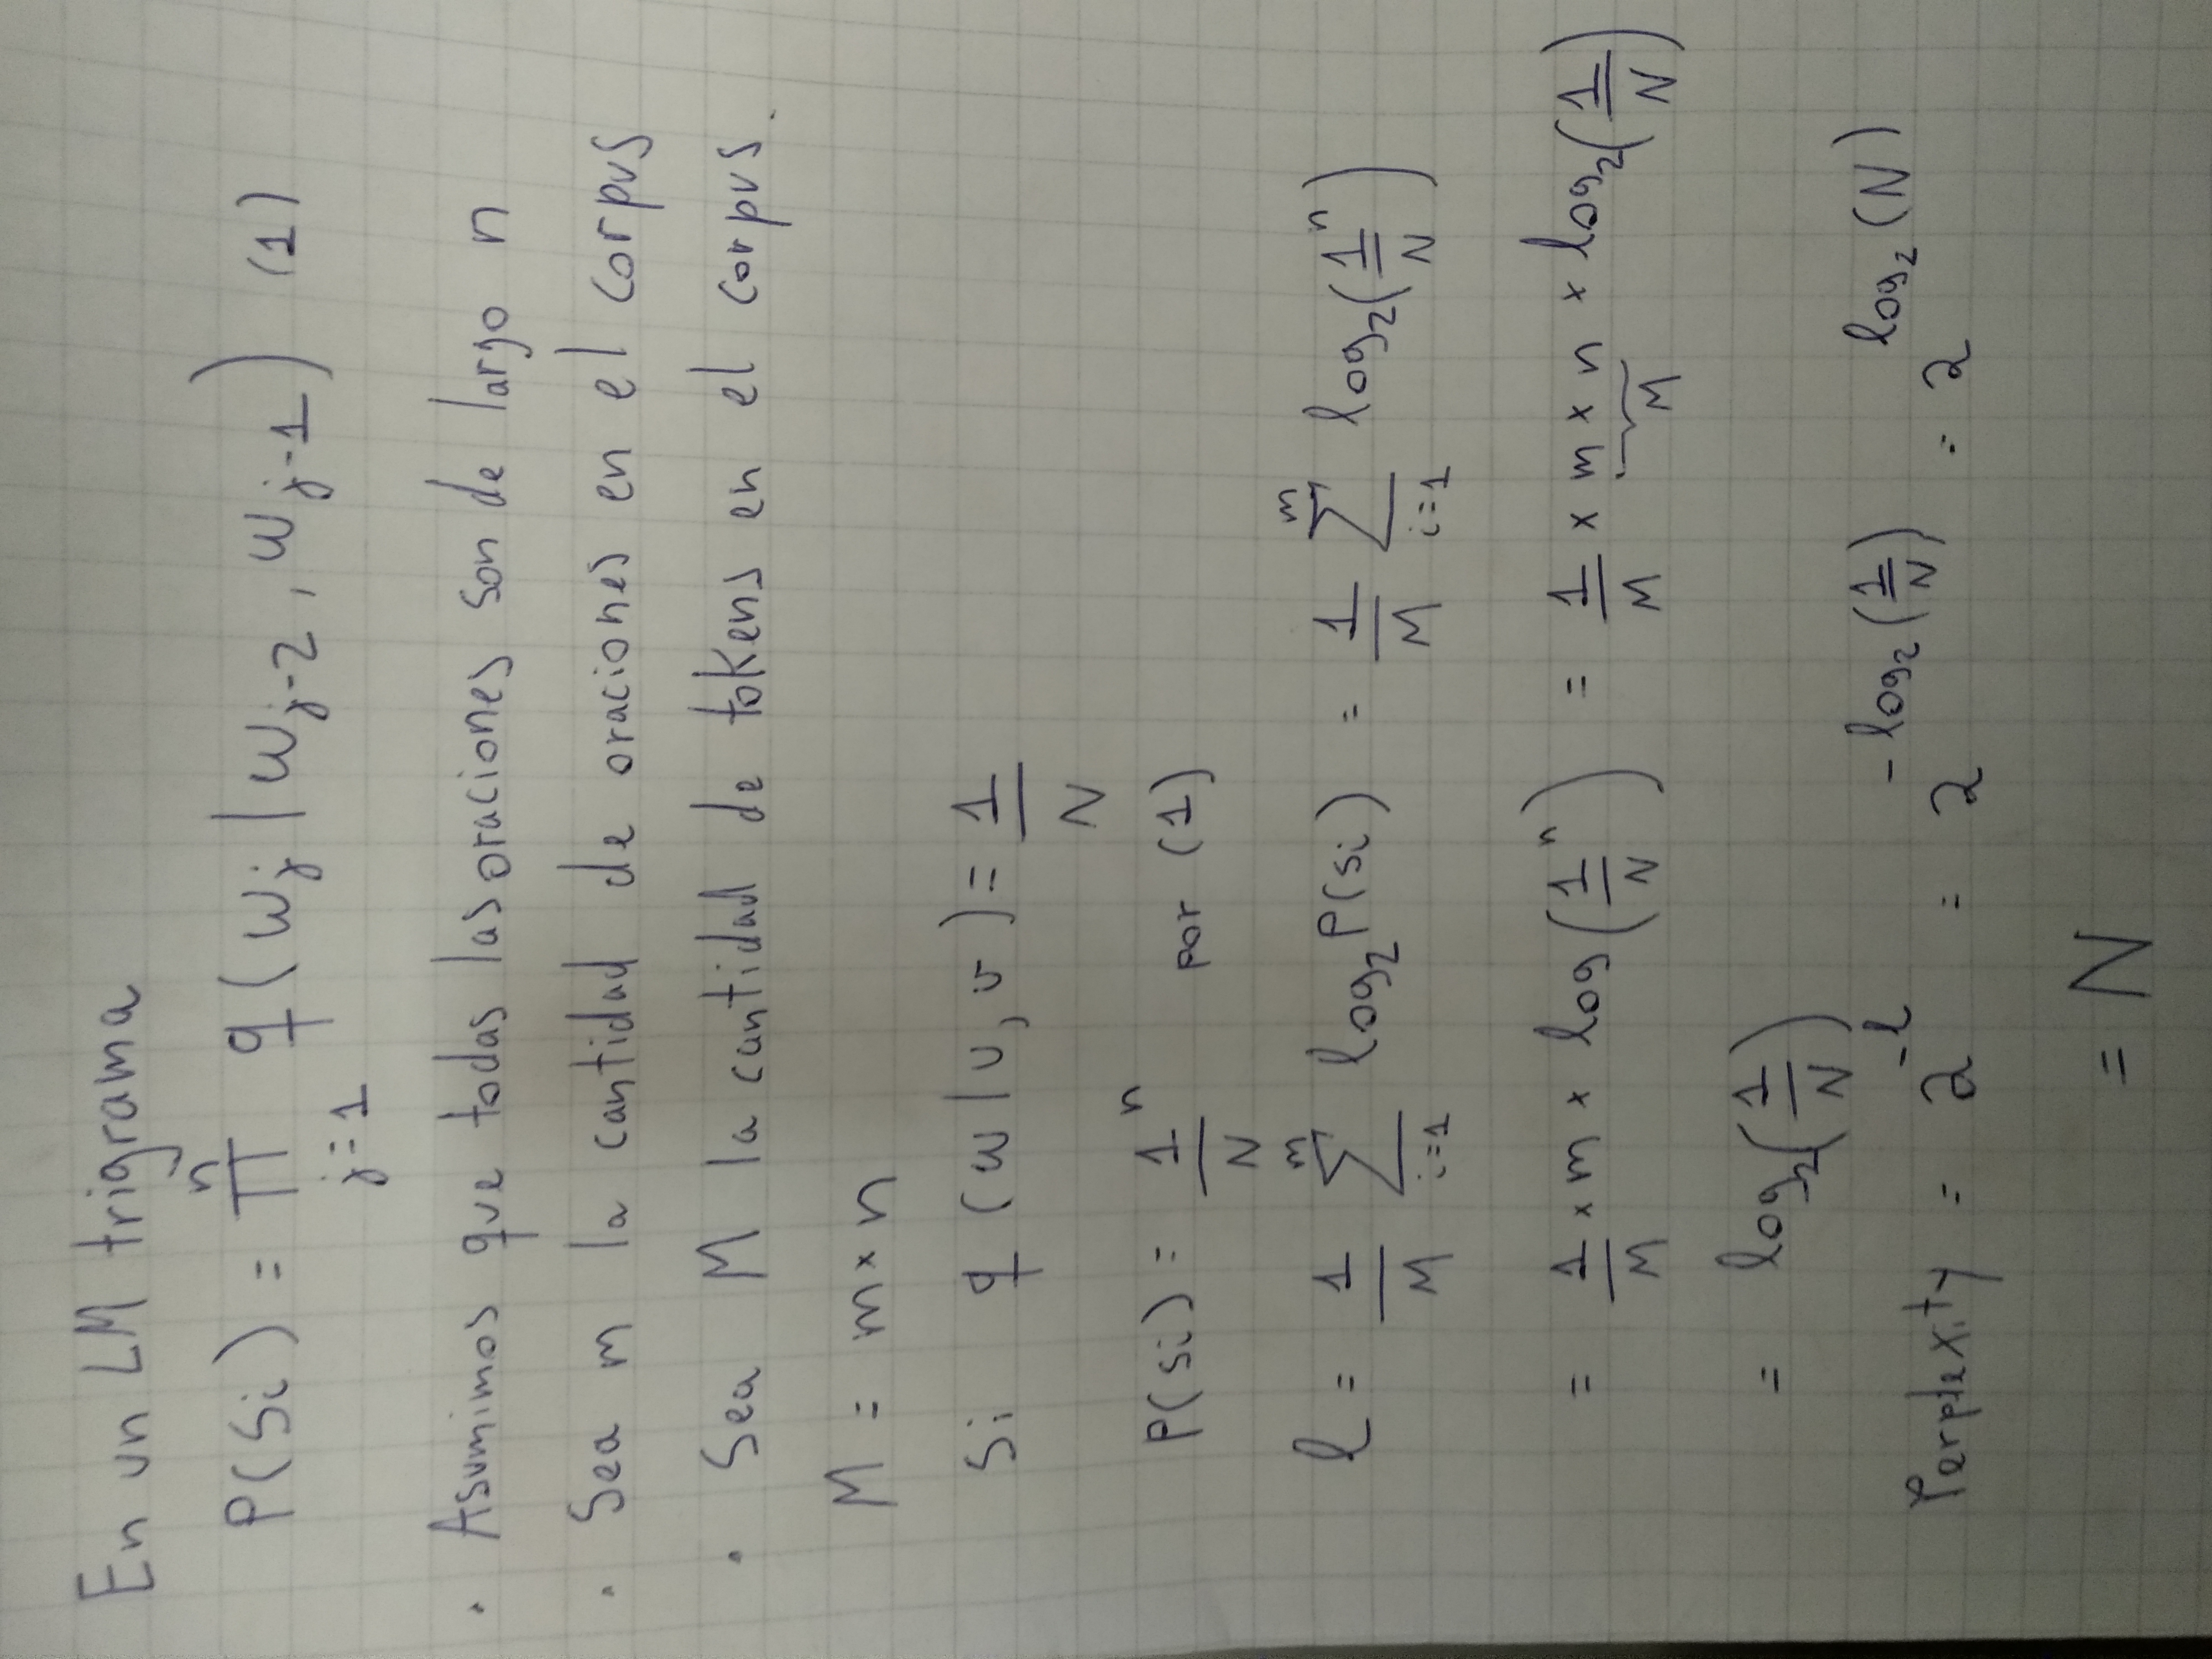 En un LM trigrama
P(Si) = ∏_{j=1}^{n} q(wj | wj-2, wj-1) (1)
· Asumimos que todas las oraciones son de largo n
· Sea m la cantidad de oraciones en el corpus
· Sea M la cantidad de tokens en el corpus.
M = m × n
Si q(w | u, v) = 1/N
P(si) = 1/N^n por (1)
l = 1/M ∑_{i=1}^{m} log₂ P(si) = 1/M ∑_{i=1}^{m} log₂(1/N^n)
= 1/M × m × log(1/N^n) = 1/M × m × n × log₂(1/N)
M
= log₂(1/N)
Perplexity = 2^{-l} = 2^{-log₂(1/N)} = 2^{log₂(N)}
= N